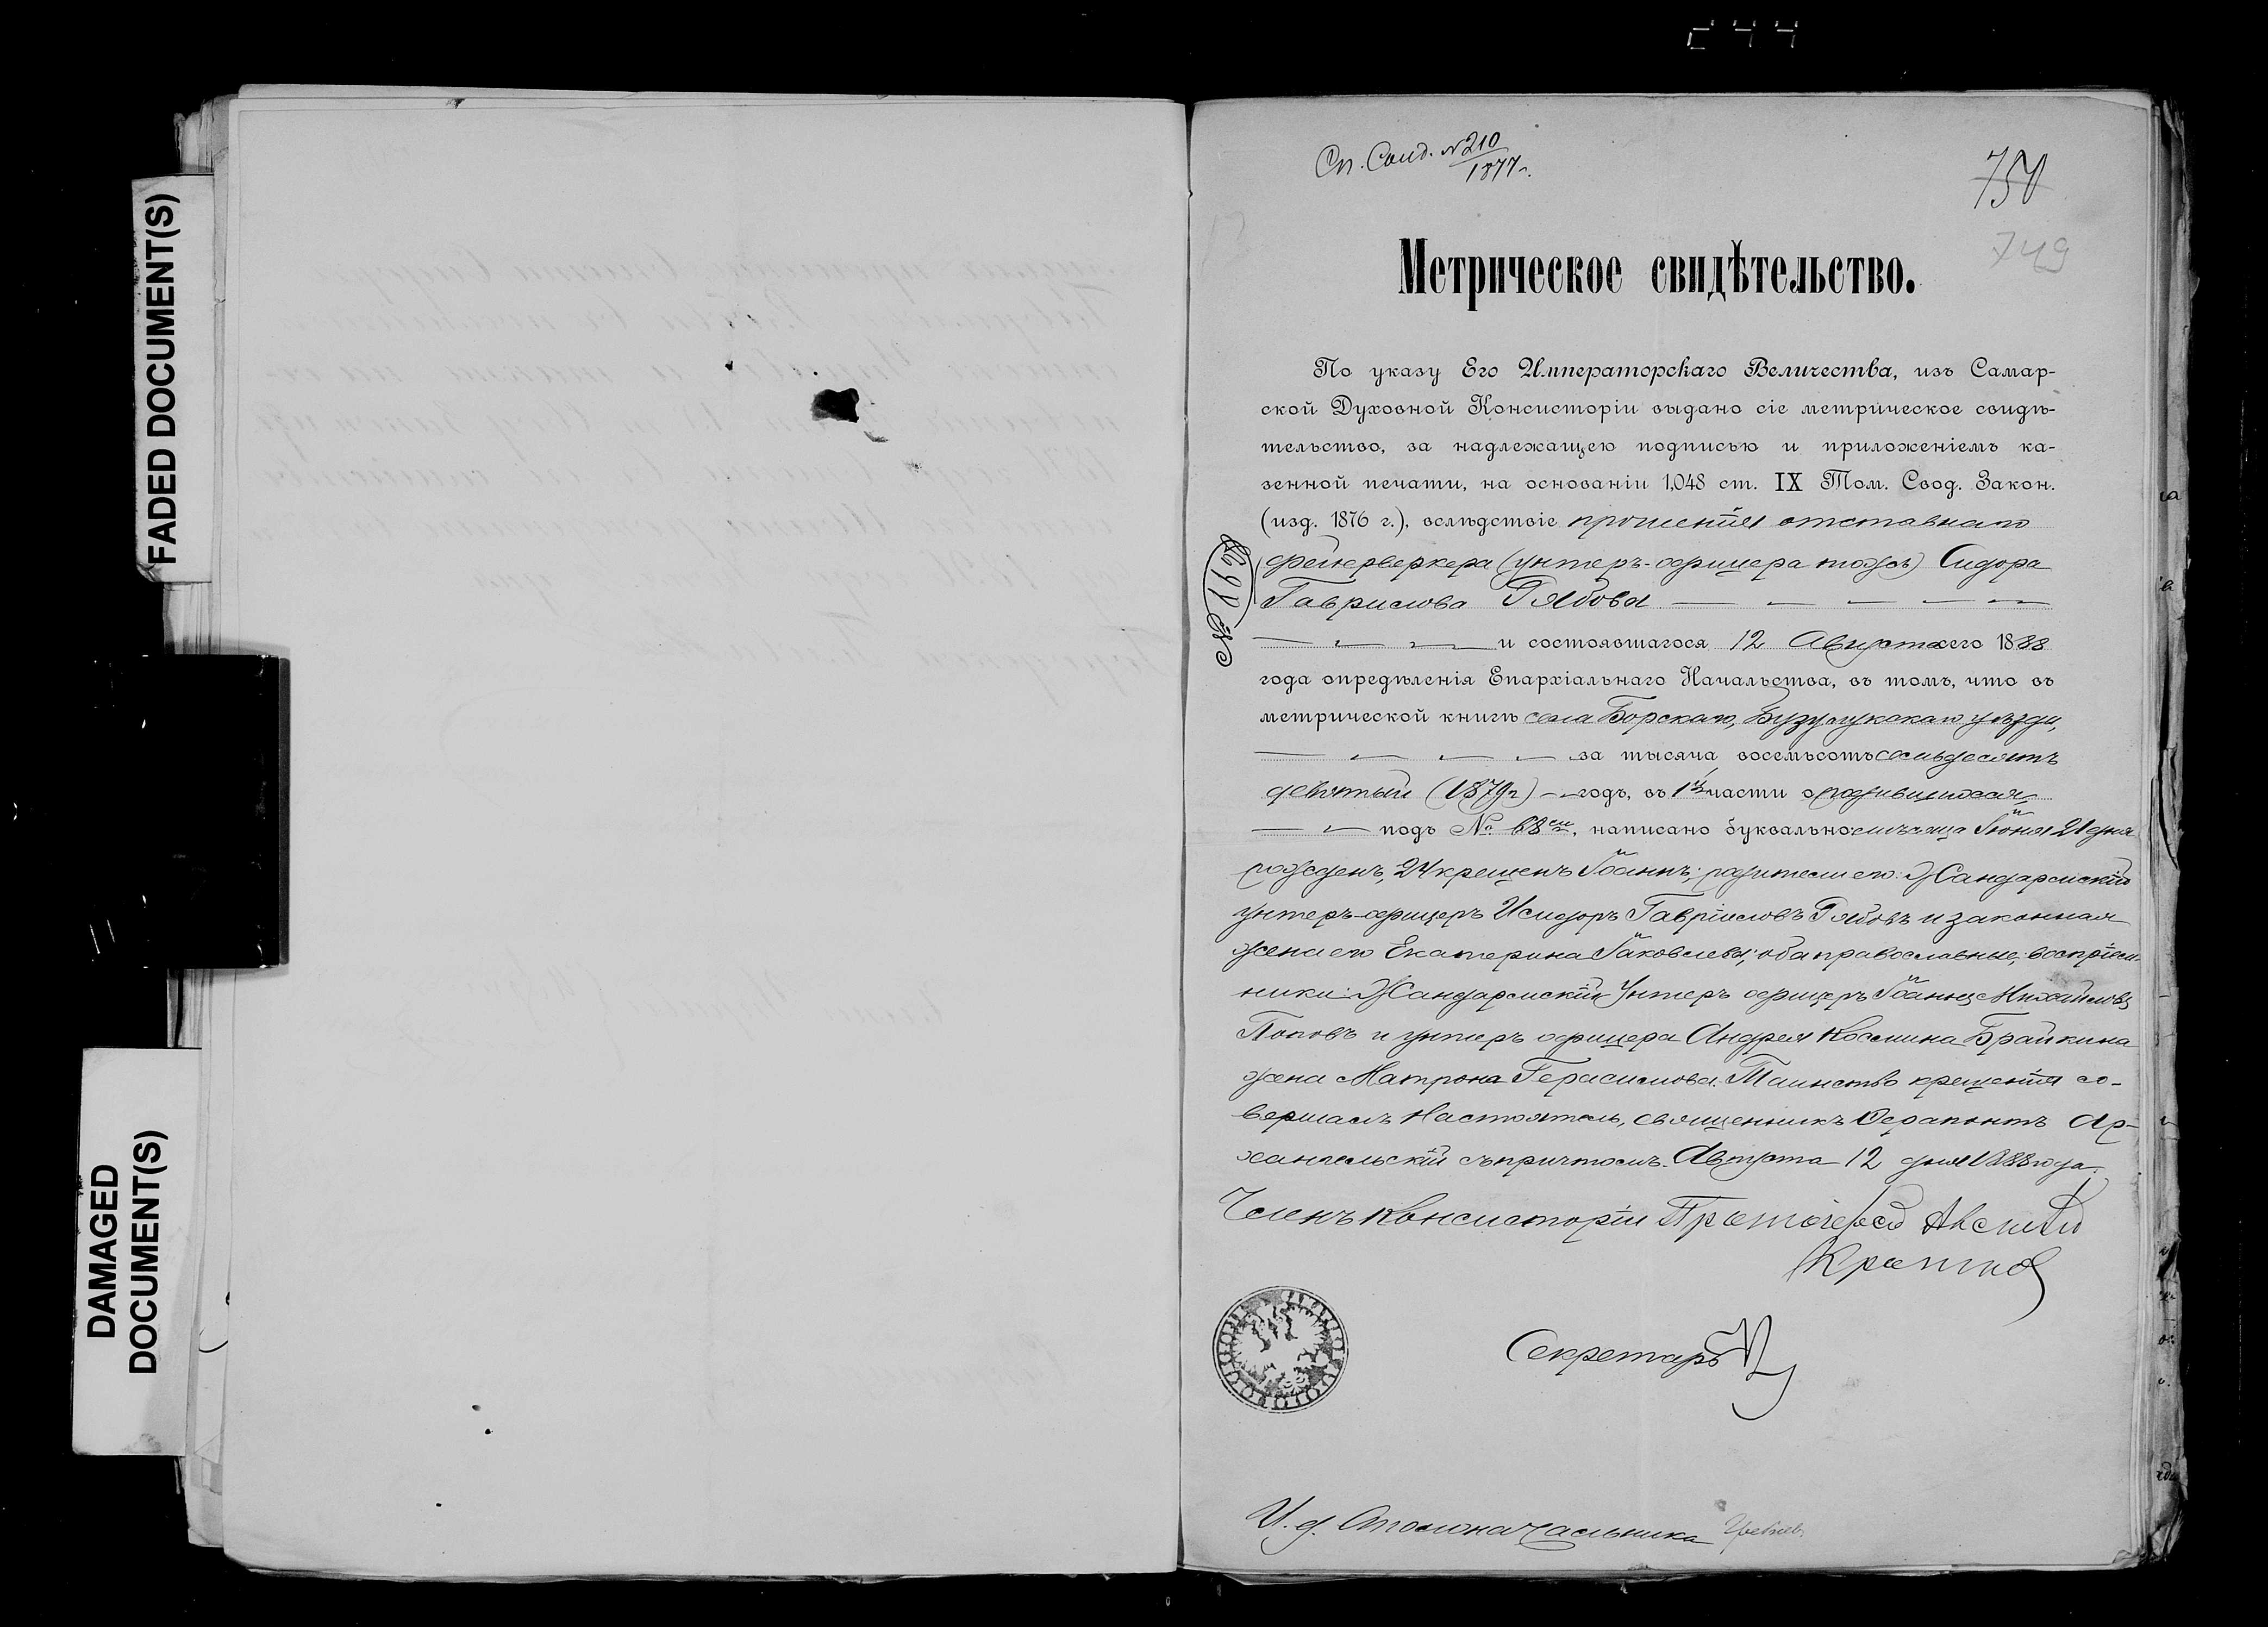 FADED DOCUMENT(S)
DAMAGED
DOCUMENT(S)
Сп. Солд. №210
1877 г.
750
749
Метрическое свидѣтельство.
По указу Его Императорскаго Величества, изъ Самар-
ской Духовной Консисторіи выдано сіе метрическое свидѣ-
тельство, за надлежащею подписью и приложеніемъ ка-
зенной печати, на основаніи 1,048 ст. IX Том. Свод. Закон.
(изд. 1876 г.), вслѣдствіе прошенія отставнаго
фейерверкера (унтеръ-офицера тожъ) Сидора
Гаврилова Рябова
и состоявшагося 12 Августа сего 1888
года опредѣленія Епархіальнаго Начальства, въ томъ, что въ
метрической книгѣ села Борскаго, Бузулукскаго уѣзда,
за тысяча восемьсотъ семьдесятъ
девятый (1879 г) годъ, въ 1й части о родившихся,
подъ № 68ем, написано буквально: мѣсяца Іюня 21 дня
рожденъ, 24 крещенъ Іоаннъ; родители его: Жандармскій
унтеръ-офицеръ Исидоръ Гавріиловъ Рябовъ и законная
жена его Екатерина Іаковлева; оба православные; воспріем-
ники: Жандармскій Унтеръ офицеръ Іоаннъ Михайловъ
Поповъ и унтеръ офицера Андрея Космина Брайкина
жена Матрона Герасимова. Таинство крещенія со-
вершалъ Настоятель, священникъ Ѳерапонтъ Ар-
хангельскій съ причтомъ. Августа 12 дня 1888 года.
Членъ Консисторіи Протоіерей
Секретарь
И. д. Столоначальника